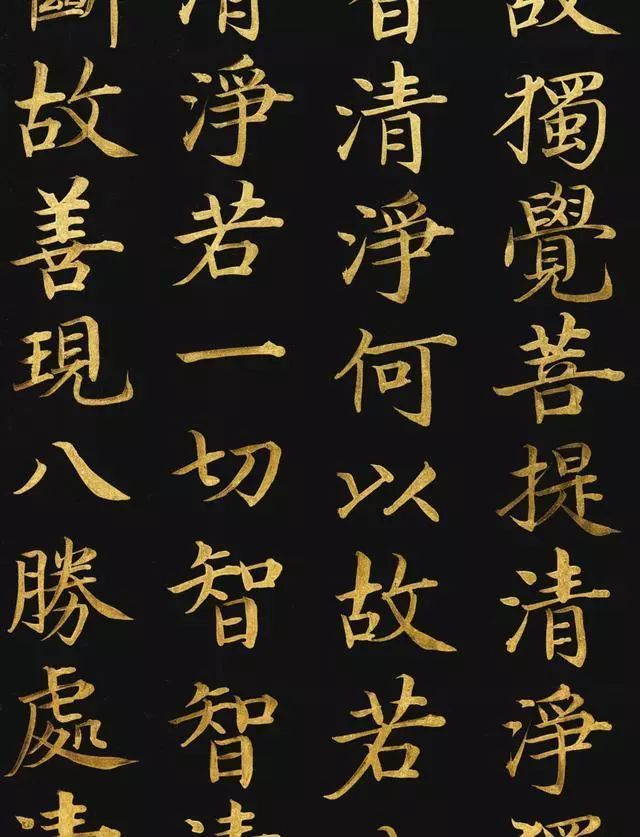 故獨覺菩提清淨獨
智清淨何以故若
清淨若一切智智清
斷故善現八勝處清